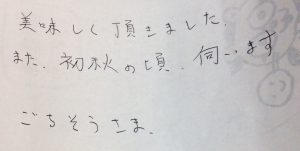 美味しく頂きました.
また、初秋の頃、伺います
ごちそうさま.